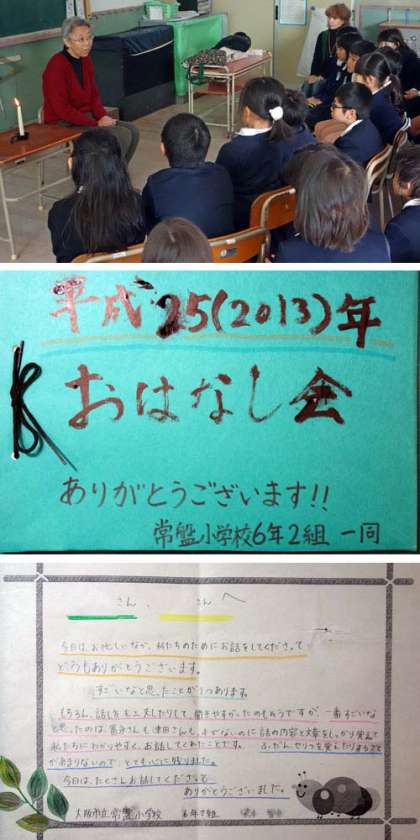 平成25(2013)年
おはなし会
ありがとうございます!!
常盤小学校6年2組 一同
さん、 さんへ
今日は、お忙しいなか、私たちのためにお話をしてくださって
どうもありがとうございます。
すごいなと思ったことが1つあります。
もちろん、話し方も工夫したりして、聞きやすかったのもそうですが、一番すごいな
と思ったのは、冨永さんも津田さんも、
私たちにわかりやすく、お話してくれたことです。 ふだん、セリフを覚えたりすること
があまりないので、とても心に残りました。
今日は、たくさんお話してくださって
ありがとうございました。
大阪市立常盤小学校 6年2組